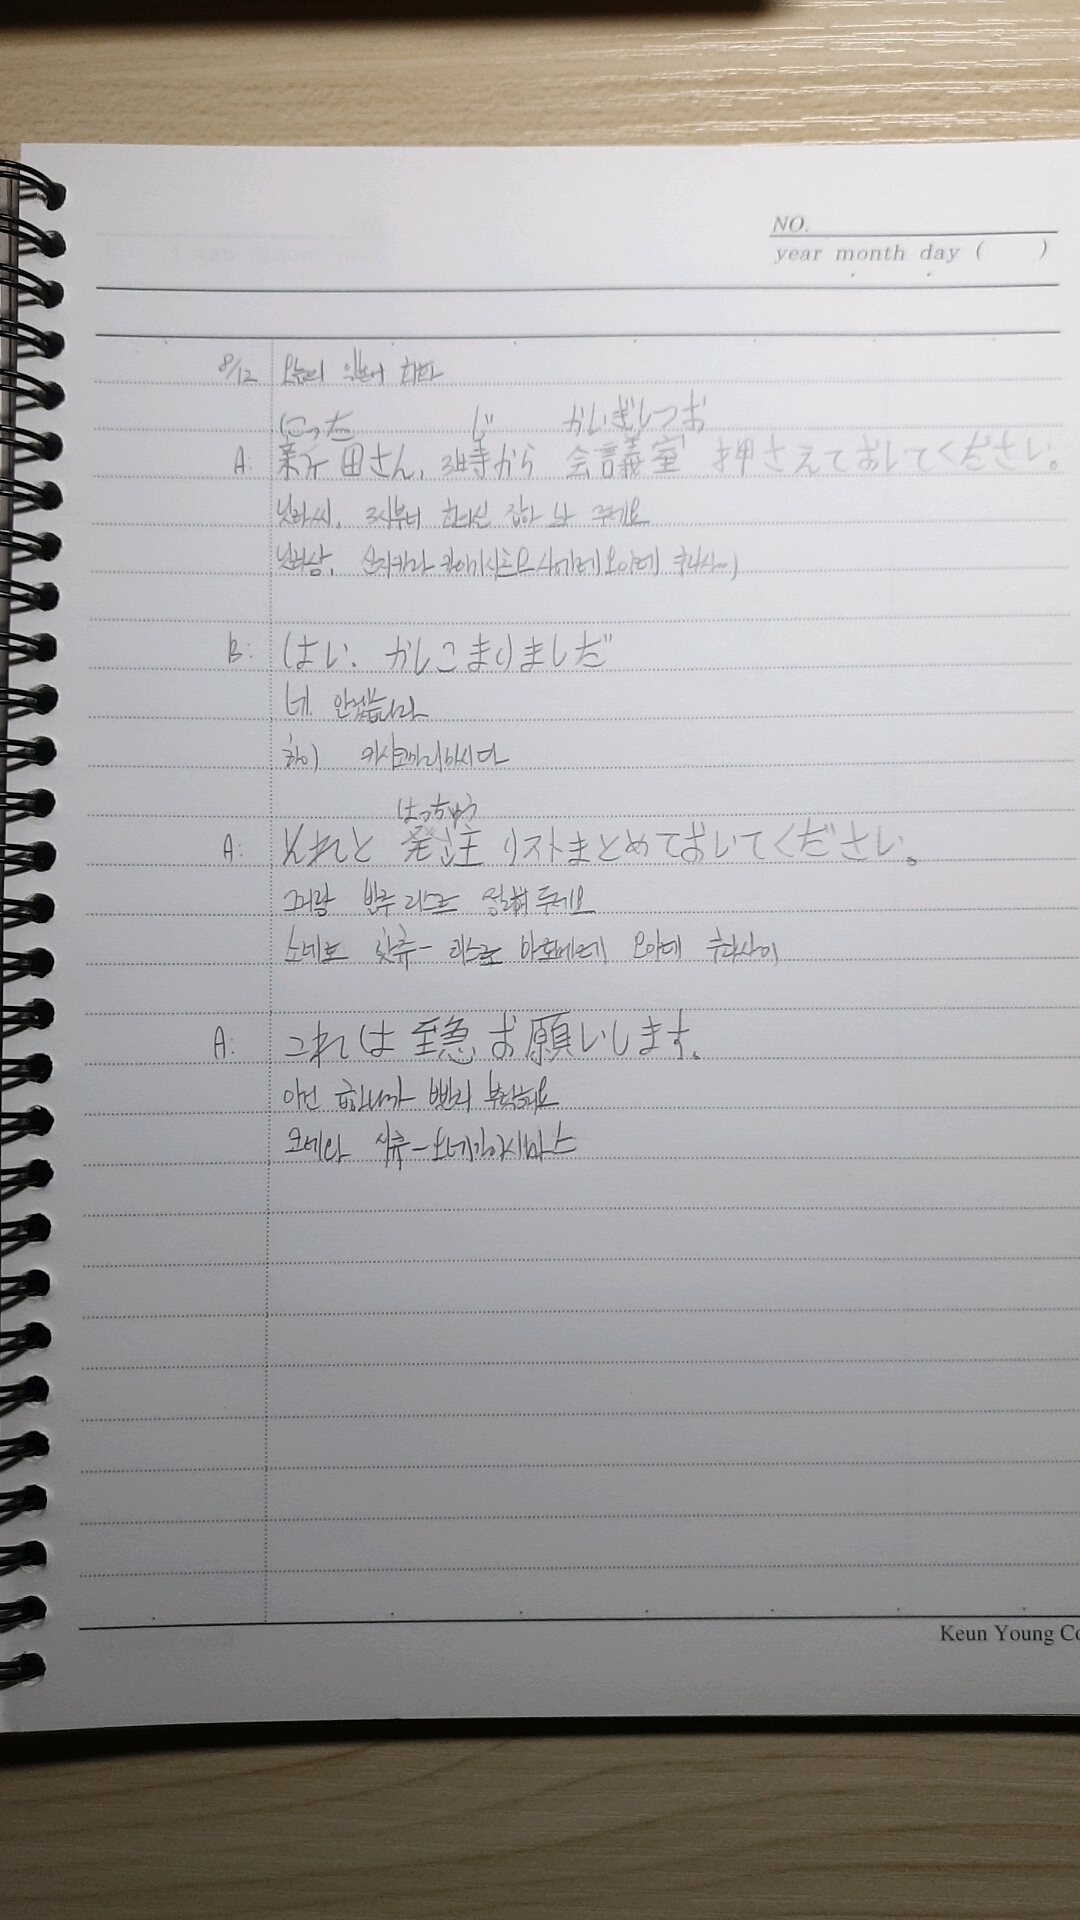 NO.
year month day ( )
8/12 오늘의 일본어 회화
にった じ かいぎしつお
A: 新田さん、3時から 会議室 押さえておしてください。
닛타씨. 3시부터 회의실 잡아 놔 주세요
닛타상. 산지카라 카이기시츠오 사에테 오이테 쿠다사이
B: はい、かしこまりましだ
네 알겠습니다
하이 카시코마리마시다
はっちゅう
A: それと 発注 リストまとめておいてください。
그거랑 발주 리스트 정리해 두세요
소레토 핫츄ー 리스트 마토메테 오이테 쿠다사이
A: これは 至急 お願いします。
이건 급하니까 빨리 부탁해요
코레와 시큐ー 오네가이시마스
Keun Young Co